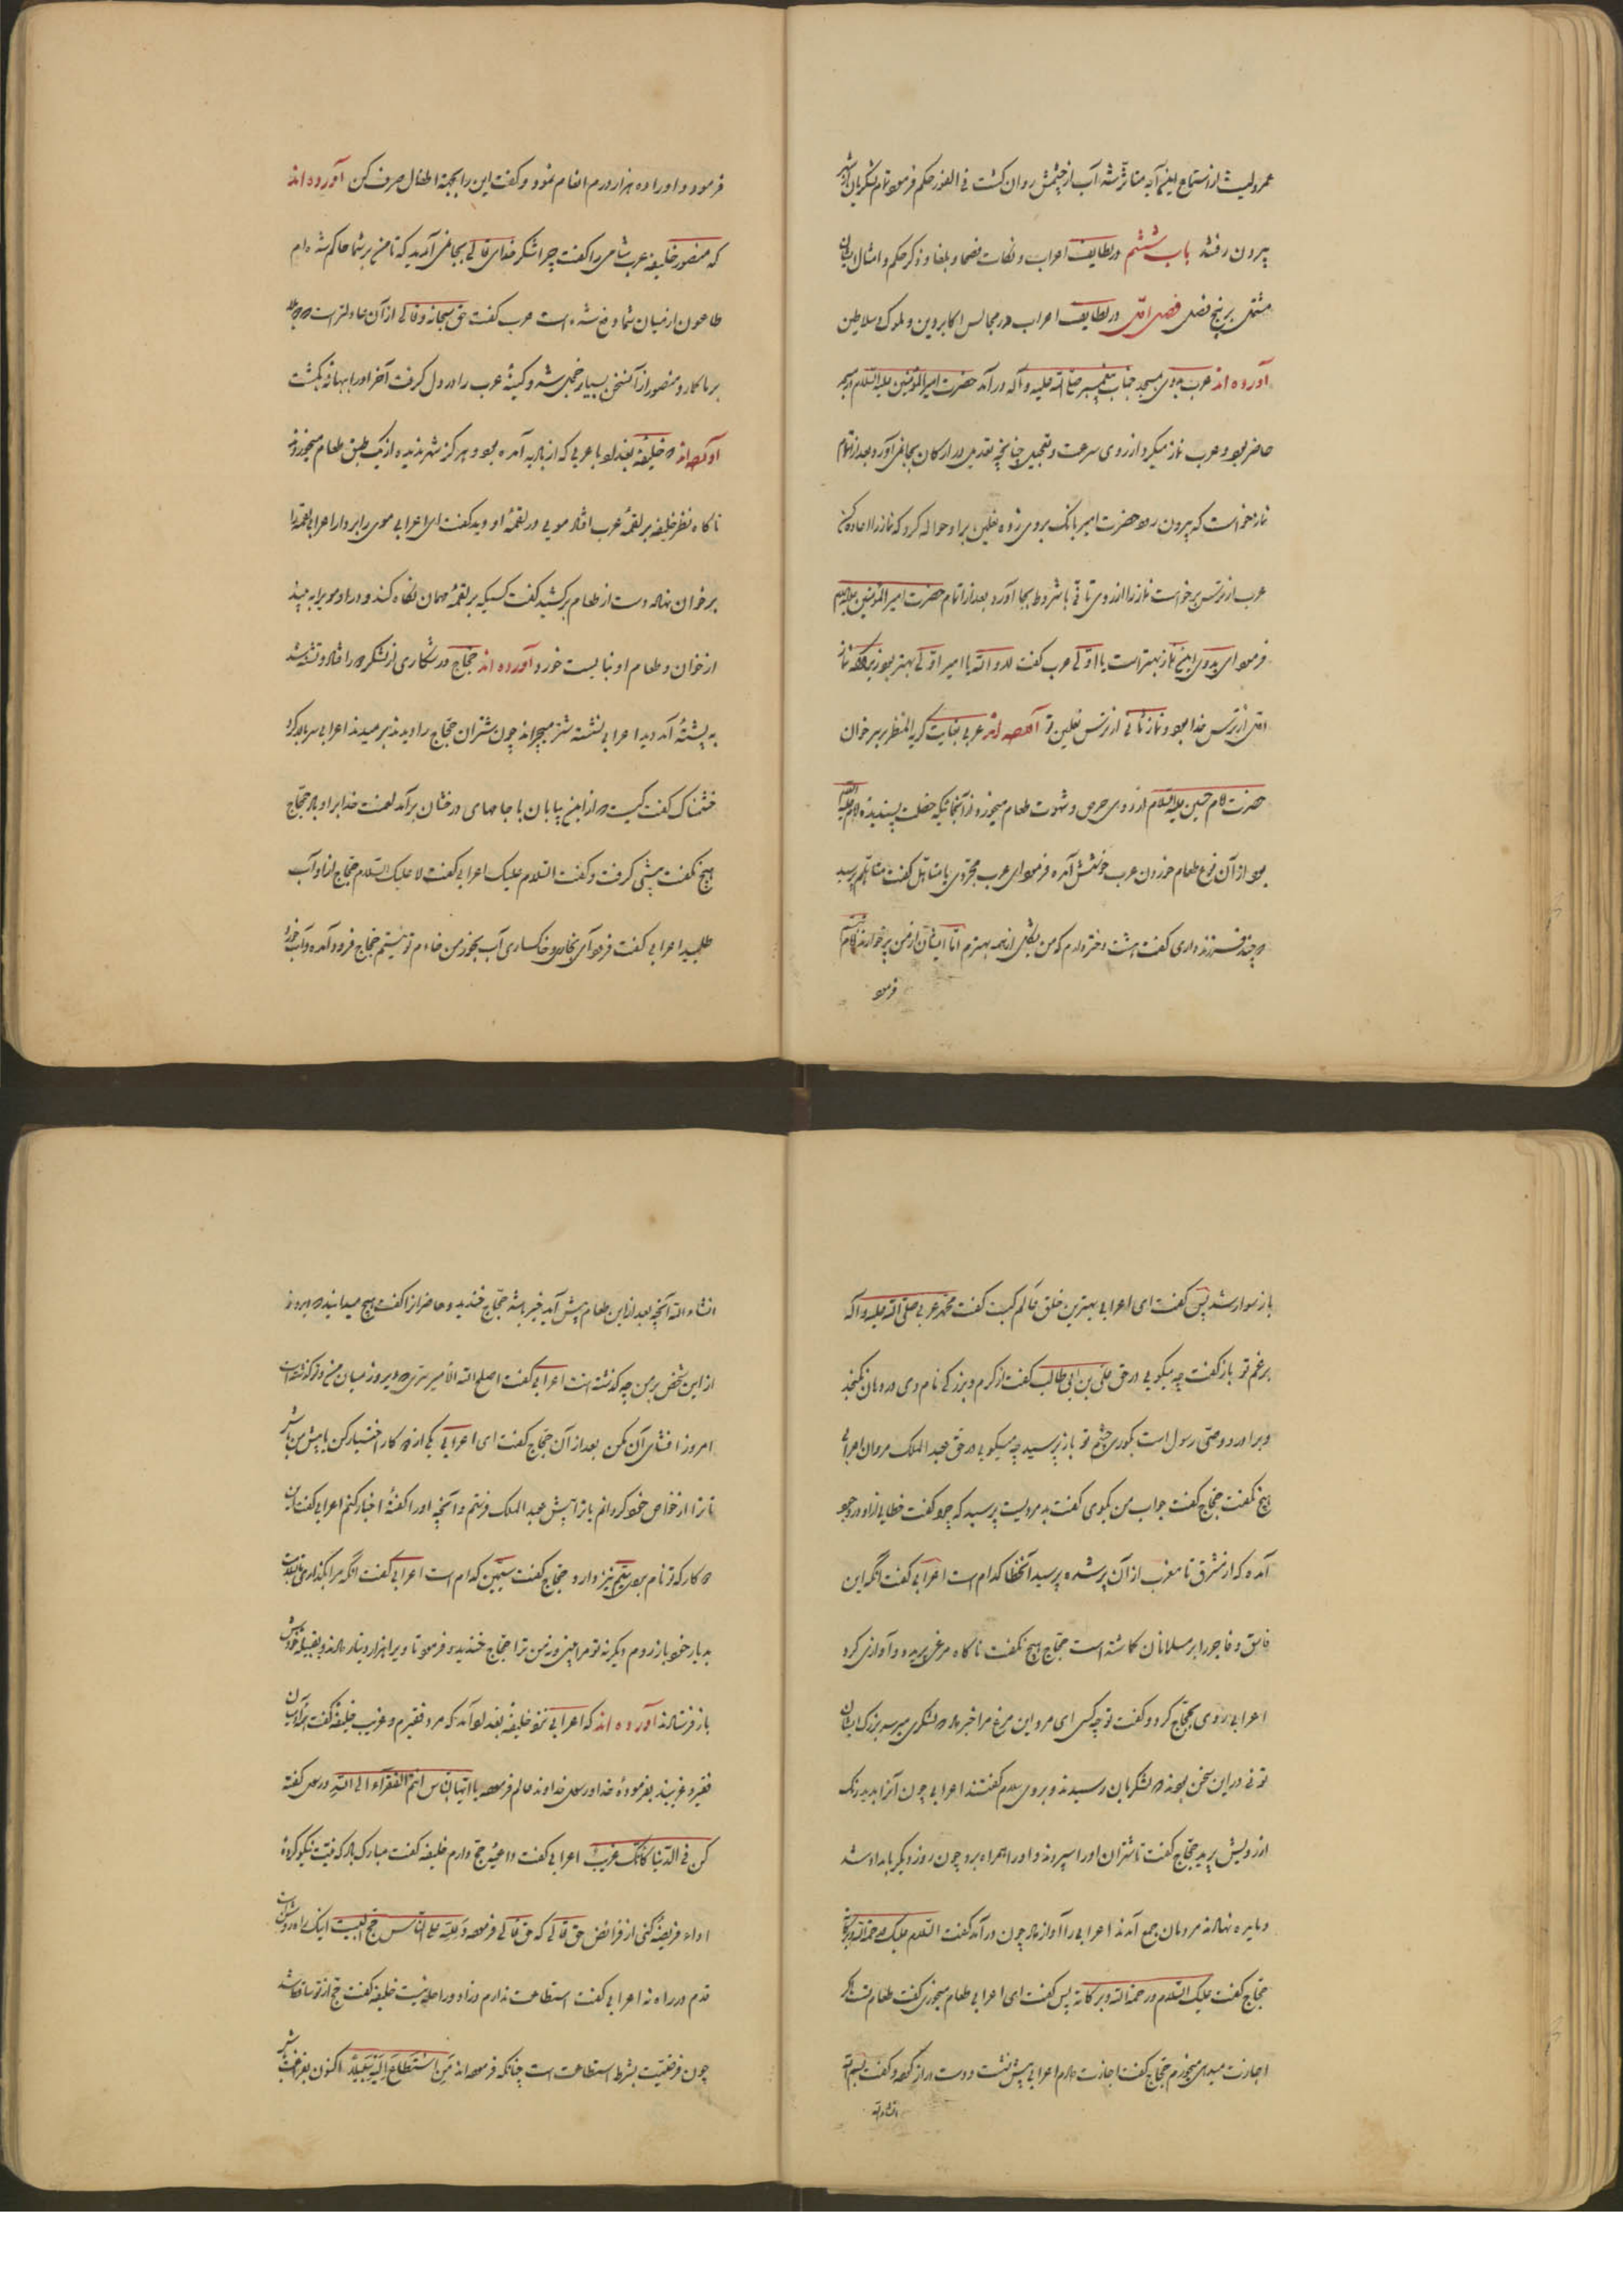 عمرو لیث از استماع این آیه متأثر شد آب از چشمش روان گشت فی الفور حکم فرمود تمام لشکریان از شهر
بیرون رفتند باب ششم در لطایف اعراب و نکات فصحا و بلغا و ذکر حکم و امثال ایشان
مشتمل بر پنج فصل فصل اول در لطایف اعراب در مجالس اکابر دین و ملوک و سلاطین
آورده اند عرب بدوی بمسجد جناب پیغمبر صلی الله علیه و آله درآمد حضرت امیرالمؤمنین علیه السلام در مسجد
حاضر بود و عرب نماز میکرد از روی سرعت و تعجیل چنانچه تعدیل در ارکان بجا نمی آورد بعد از اتمام
نماز خواست که بیرون رود حضرت امیر بانگ بر وی زده نعلین بر او حواله کرد که نماز را اعاده کن
عرب از ترس برخاست نماز را از روی تأنی با شروط بجا آورد بعد از اتمام حضرت امیرالمؤمنین علیه السلام
فرمود ای بدوی این نماز بهتر است یا اولی عرب گفت لا والله یا امیر اولی بهتر بود زیرا که نماز
اول از ترس خدا بود و نماز ثانی از ترس نعلین تو آورده اند عربی بغایت کریه المنظر بر خوان
حضرت امام حسین علیه السلام از روی حرص و شهوت طعام میخورد از آنجائیکه خصلت پسندیده امام علیه السلام
بود از آن نوع طعام خوردن عرب خوشش آمده فرمود ای عرب مجردی یا متأهل گفت متأهلم پرسید
که چند فرزند داری گفت هشت دختر دارم که من بشکل از همه بهترم اما ایشان از من پرخوارند امام تبسم
فرمود
فرمود و او را ده هزار درم انعام نمود و گفت این را بجهة اطفال صرف کن آورده اند
که منصور خلیفه عرب شامی را گفت چرا شکر خدای تعالی بجا نمی آرید که تا من بر شما حاکم شده ام
طاعون از میان شما رفع شده است عرب گفت حق سبحانه و تعالی از آن عادلتر است که دو بلا
بر ما گمارد منصور از آن سخن بسیار خجل شد و کینهٔ عرب را در دل گرفت آخر او را ببهانه بکشت
آورده اند که خلیفهٔ بغداد با عربی که از بادیه آمده بود و هرگز شهر ندیده از یک طبق طعام میخوردند
ناگاه نظر خلیفه بر لقمهٔ عرب افتاد مویی در لقمهٔ او دید گفت ای اعرابی موی را بردار اعرابی لقمه را
بر خوان نهاد دست از طعام برکشید گفت کسیکه بر لقمهٔ مهمان نگاه کند و در او مو را به بیند
از خوان و طعام او نبایست خورد آورده اند حجاج در شکاری از لشکر جدا افتاد و تشنه شد
به پشتهٔ آمد دید اعرابی نشسته شتر میچراند چون شتران حجاج را دیدند برمیدند اعرابی سر بالا کرد
خشمناک گفت کیست که از این بیابان با جامهای درخشان برآمد لعنت خدا بر او باد حجاج
هیچ نگفت پیش گرفت و گفت السلام علیک اعرابی گفت لا علیک السلام حجاج از او آب
طلبید اعرابی گفت فرود آی بخواری و خاکساری آب بخور من خادم تو نیستم حجاج فرود آمده و آب خورد
باز سوار شد پس گفت ای اعرابی بهترین خلق عالم کیست گفت محمد عربی صلی الله علیه و آله
برغم تو باز گفت چه میگویی در حق علی بن ابی طالب گفت از کرم و بزرگی نام وی در دهان نگنجد
و برادر و وصی رسول است بکوری چشم تو باز پرسید چه میگویی در حق عبد الملک مروان اعرابی
هیچ نگفت حجاج گفت جواب من بگوی گفت بد مردیست پرسید که چرا گفت خطایی از او در وجود
آمده که از مشرق تا مغرب از آن پر شده پرسید آن خطا کدام است اعرابی گفت آنکه این
فاسق و فاجر را بر مسلمانان گماشته است حجاج هیچ نگفت ناگاه مرغی پریده و آوازی کرد
اعرابی روی بحجاج کرد و گفت تو چه کسی ای مرد این مرغ مرا خبر داد که لشکری میرسد بزرگ ایشان
توئی در این سخن بودند که لشکریان رسیدند و بر وی سلام گفتند اعرابی چون آنرا بدید رنگ
از رویش پرید حجاج گفت تا شتران او را سپردند و او را همراه برد چون روز دیگر بامداد شد
و مایده نهادند مردمان جمع آمدند اعرابی را آواز داد چون درآمد گفت السلام علیک و رحمة الله و برکاته
حجاج گفت علیک السلام و رحمة الله و برکاته پس گفت ای اعرابی طعام میخوری گفت طعام تست اگر
اجازت میدهی میخورم حجاج گفت اجازت دادم اعرابی پیش نشست و دست دراز کرد و گفت بسم الله
انشاء الله
انشاء الله آنچه بعد از این طعام پیش آید خیر باشد حجاج خندید و حاضران را گفت هیچ میدانید که دیروز
از این شخص بر من چه گذشته است اعرابی گفت اصلح الله الامیر سری که دیروز میان من و تو گذشته است
امروز افشای آن مکن بعد از آن حجاج گفت ای اعرابی یکی از دو کار اختیار کن یا پیش من باش
تا ترا از خواص خود گردانم یا ترا پیش عبد الملک فرستم و آنچه او را گفتهٔ اخبار کنم اعرابی گفت این
دو کار که تو نام بردی سیم نیز دارد حجاج گفت سیمین کدام است اعرابی گفت آنکه مرا بگذاری تا بسلامت
بدیار خود باز روم دیگر نه تو مرا بینی و نه من ترا حجاج خندیده فرمود تا ویرا هزار دینار دادند و بقبیله خودش
باز فرستادند آورده اند که اعرابی نزد خلیفه بغداد آمد که مرد فقیرم و غریب خلیفه گفت همه آدمیان
فقیر و غریبند بفرمودهٔ خدا و رسول خداوند عالم فرموده یا ایها الناس انتم الفقراء الی الله و رسول گفته
کن فی الدنیا کانک غریب اعرابی گفت داعیهٔ حج دارم خلیفه گفت مبارک باد که نیت نیکو کردهٔ
اداء فریضهٔ کنی از فرائض حق تعالی که حق تعالی فرموده و لله علی الناس حج البیت اینک راه روشن است
قدم در راه نه اعرابی گفت استطاعت ندارم و زاد و راحله نیست خلیفه گفت حج از تو ساقط شد
چون فرضیت بشرط استطاعت است چنانکه فرموده اند من استطاع الیه سبیلا اکنون بفراغت باش